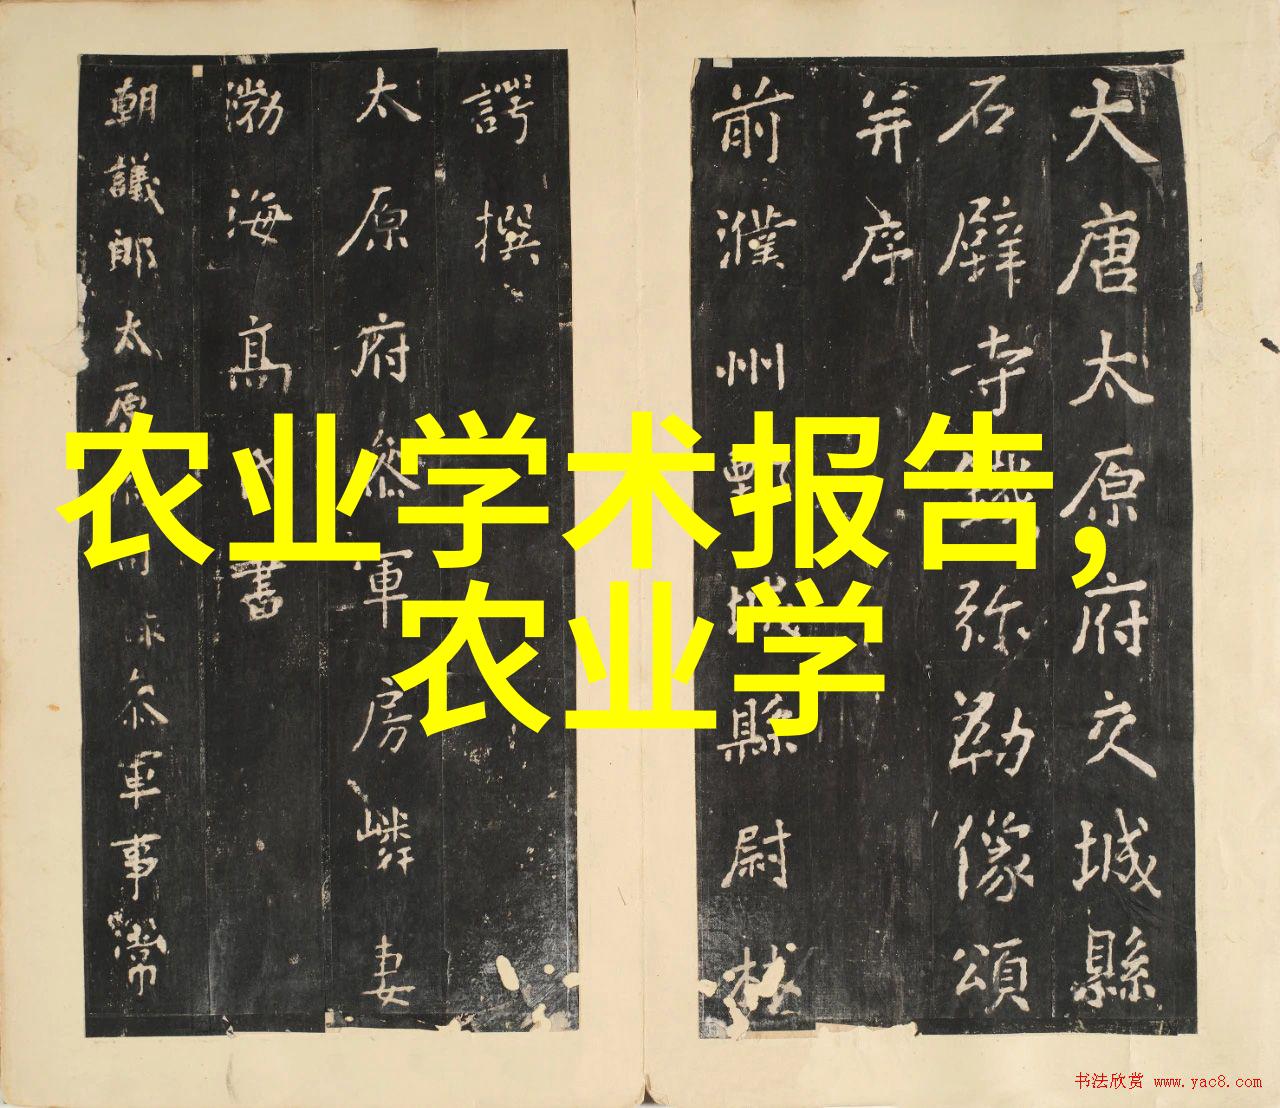 大唐太原府交城縣
石壁寺鐵弥勒像頌
并序
前濮州鄄城縣尉林
諤撰
太原府叅軍房嶙妻
渤海髙氏書
朝議郎太原府司録叅軍事常
农业学术报告,
农业学
书法欣赏 www.yac8.com